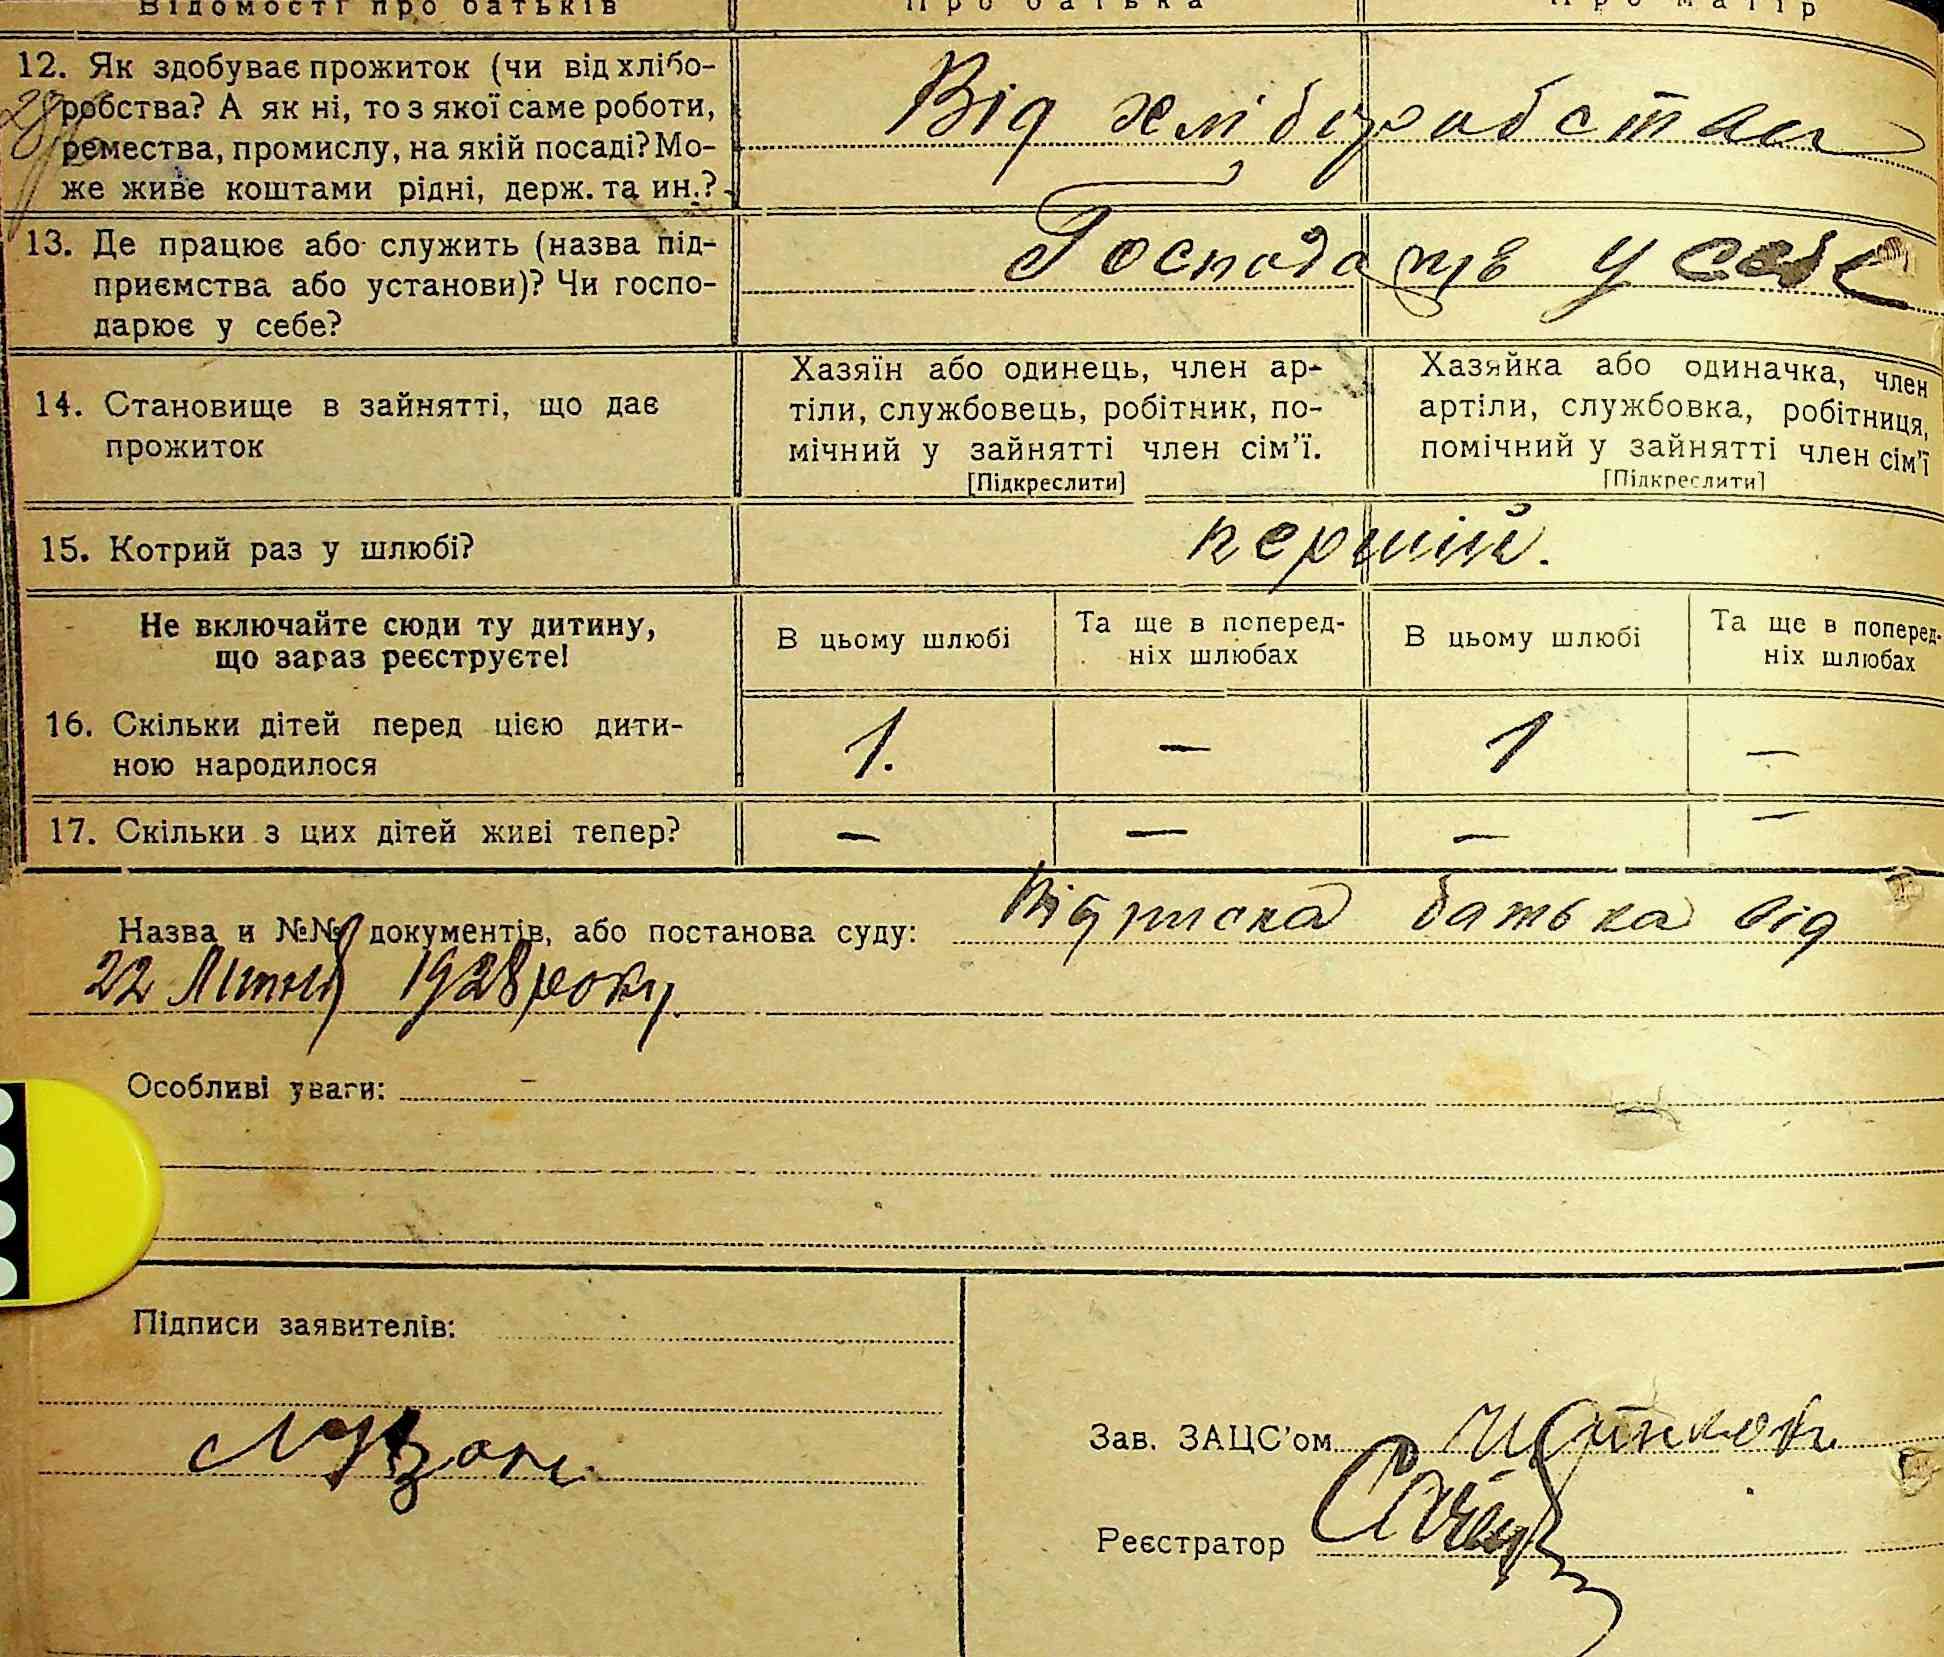 Відомості про батьків Про батька Про матір
12. Як здобуває прожиток (чи від хлібо-
робства? А як ні, то з якої саме роботи,
ремества, промислу, на якій посаді? Мо-
же живе коштами рідні, держ. та ин.?
Від хліборобства
13. Де працює або служить (назва під-
приємства або установи)? Чи госпо-
дарює у себе?
Господарює у себе
14. Становище в зайнятті, що дає
прожиток
Хазяїн або одинець, член ар-
тіли, службовець, робітник, по-
мічний у зайнятті член сім'ї.
[Підкреслити]
Хазяйка або одиначка, член
артіли, службовка, робітниця,
помічний у зайнятті член сім'ї
[Підкреслити]
15. Котрий раз у шлюбі? перший.
Не включайте сюди ту дитину,
що зараз реєструєте!
В цьому шлюбі
Та ще в поперед-
ніх шлюбах
В цьому шлюбі
Та ще в поперед-
ніх шлюбах
16. Скільки дітей перед цією дити-
ною народилося
1. — 1 —
17. Скільки з цих дітей живі тепер? — — — —
Назва и №№ документів, або постанова суду: Відписка батька від
22 Лютня 1928 року.
Особливі уваги: –
Підписи заявителів:
Зав. ЗАЦС'ом
Реєстратор